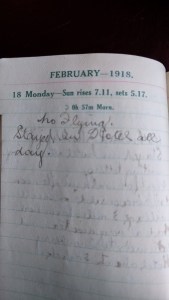 FEBRUARY—1918.
18 Monday—Sun rises 7.11, sets 5.17.
8h 57m More.
No Flying.
Stayed in Hotel all
day.